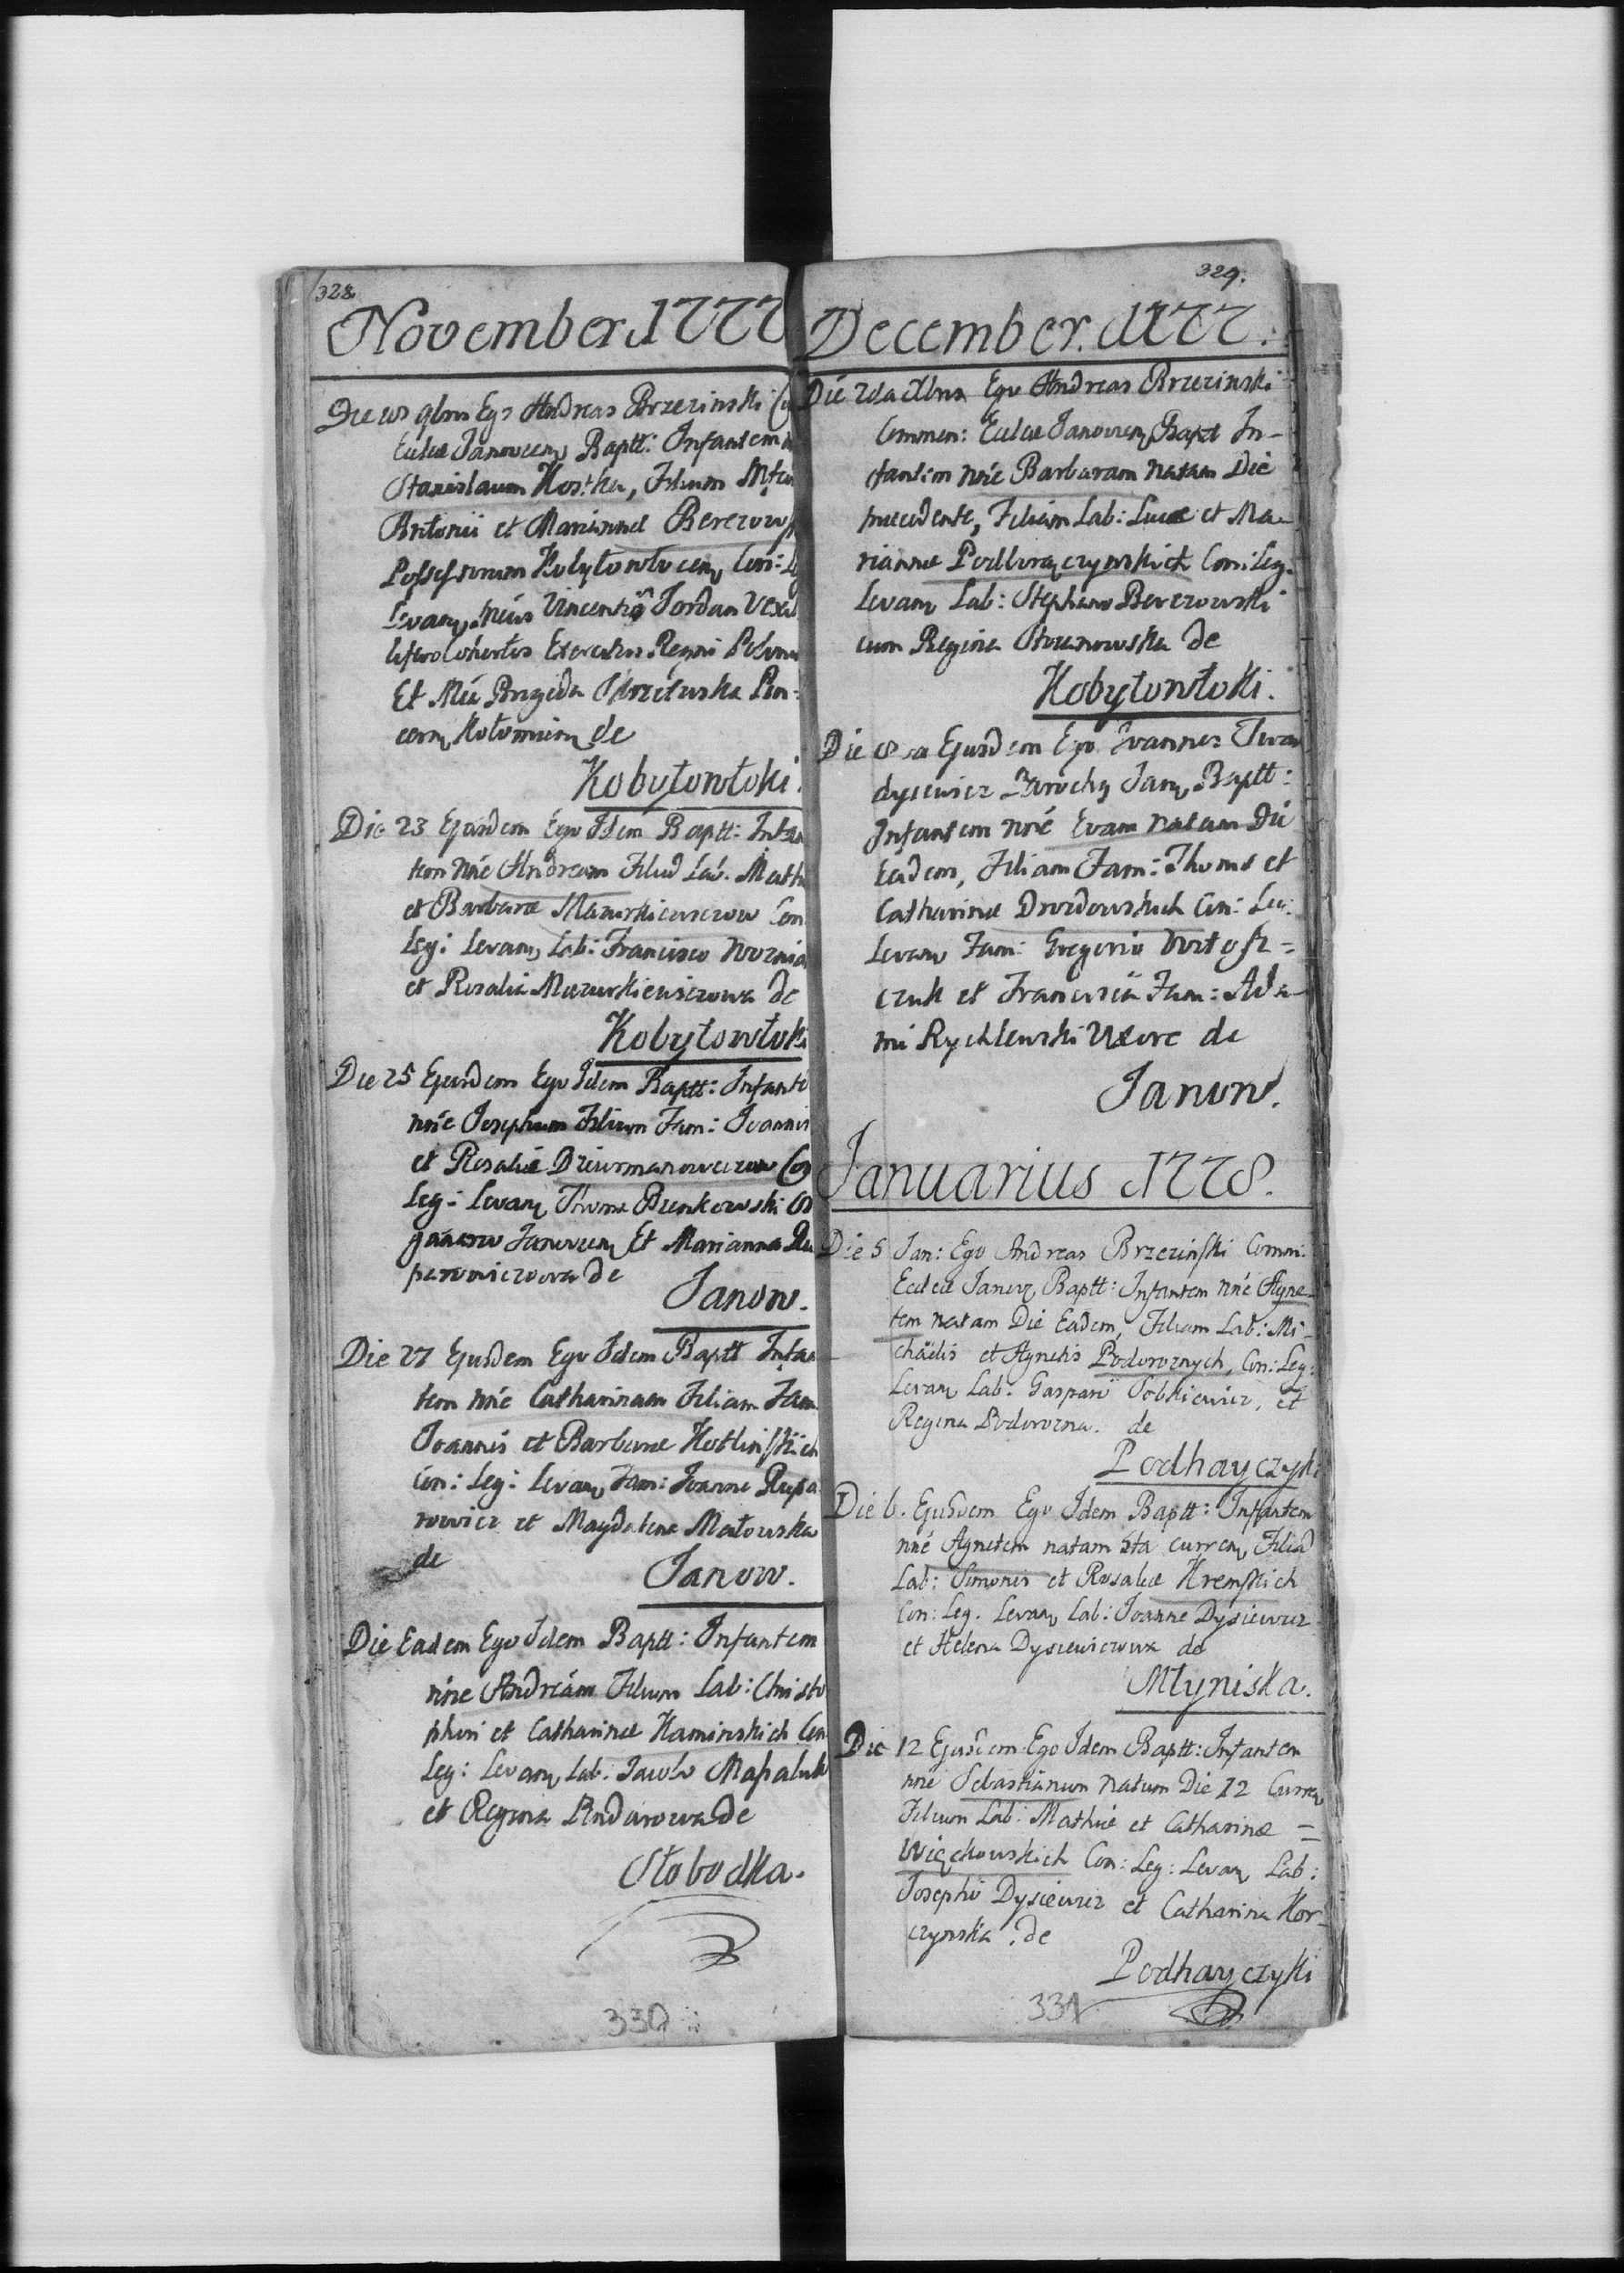 328
November 1777
Die 18 9bris Ego Andreas Brzezinski
Eccliæ Janovien Baptt: Infantem
Stanislaum Kostka, Filium
Antonii et Mariannæ Berezow
Possessorum Kobyłowłocen Con:
Levan. Vincentio Jordan Vexil
lifero Cohortis Exercitus Regni Polon
Et Brigida Skrzetuska Pin-
cern Kołomien de
Kobyłowłoki.
Die 23 Ejusdem Ego Idem Baptt: Infan
tem nñe Andream Filiũ Lab. Math
et Barbaræ Mazurkiewiczow Con
Leg: Levan Lab: Francisco Wozniak
et Rosalia Mazurkiewiczowa de
Kobyłowłoki
Die 25 Ejusdem Ego Idem Baptt: Infantē
nñe Josephum Filium Fam: Joannis
et Rosaliæ Dziurmanowiczow Con
Leg: Levan Thoma Bienkowski Or
ganario Janovien Et Marianna Ru
parowiczowa de
Janow.
Die 27 Ejusdem Ego Idem Baptt Infan
tem nñe Catharinam Filiam Fam
Joannis et Barbaræ Kotlinskich
Con: Leg: Levan Fam: Joanne Rupa
rowicz et Magdalena Matowska
de
Janow.
Die Eadem Ego Idem Baptt: Infantem
nñe Andream Filium Lab: Christo
phori et Catharinæ Kaminskich Con
Leg: Levan Lab. Jacobo Masaluk
et Regina Bndarowa de
Słobodka.
330
329.
December. 1777.
Die 2da Xbris Ego Andreas Brzezinski
Commen: Eccliæ Janovien Bapt In-
fantem nñe Barbaram natam Die
præcedente, Filiam Lab: Lucæ et Ma-
riannæ Podhorayczynskich Con: Leg.
Levan Lab: Stephano Berezowski
cum Regina Storanowska de
Kobyłowłoki.
Die 8va Ejusdem Ego Joannes Twar
dysiewicz Parochus Jan, Baptt:
Infantem nñe Evam natam Die
Eadem, Filiam Fam: Thomæ et
Catharinæ Drozdowskich Con: Leg:
Levan Fam: Gregorio Wortosz=
czuk et Francisca Fam: Ada-
mi Rychlewski Uxore de
Janow.
Januarius 1778.
Die 5 Jan: Ego Andreas Brzezinski Comm:
Eccliæ Janov, Baptt: Infantem nñe Agne-
tem natam Die Eadem, Filiam Lab: Mi-
chaëlis et Agnetis Podoroznych, Con: Leg:
Levan Lab: Gasparo Sobkiewicz, et
Regina Podorozna. de
Podhayczyki
Die 6. Ejusdem Ego Idem Baptt: Infantem
nñe Agnetem natam 5ta curren, Filiã
Lab: Simonis et Rosaliæ Krenskich
Con: Leg. Levan Lab: Joanne Dysiewicz
et Helena Dysiewiczowa de
Młyniska.
Die 12 Ejusdem Ego Idem Baptt: Infantem
nñe Sebastianum natum Die 12 Curren
Filium Lab: Mathiæ et Catharinæ =
Więckowskich Con: Leg: Levan Lab:
Josepho Dysiewicz et Catharina Kor-
czynska. de
Podhayczyki
331